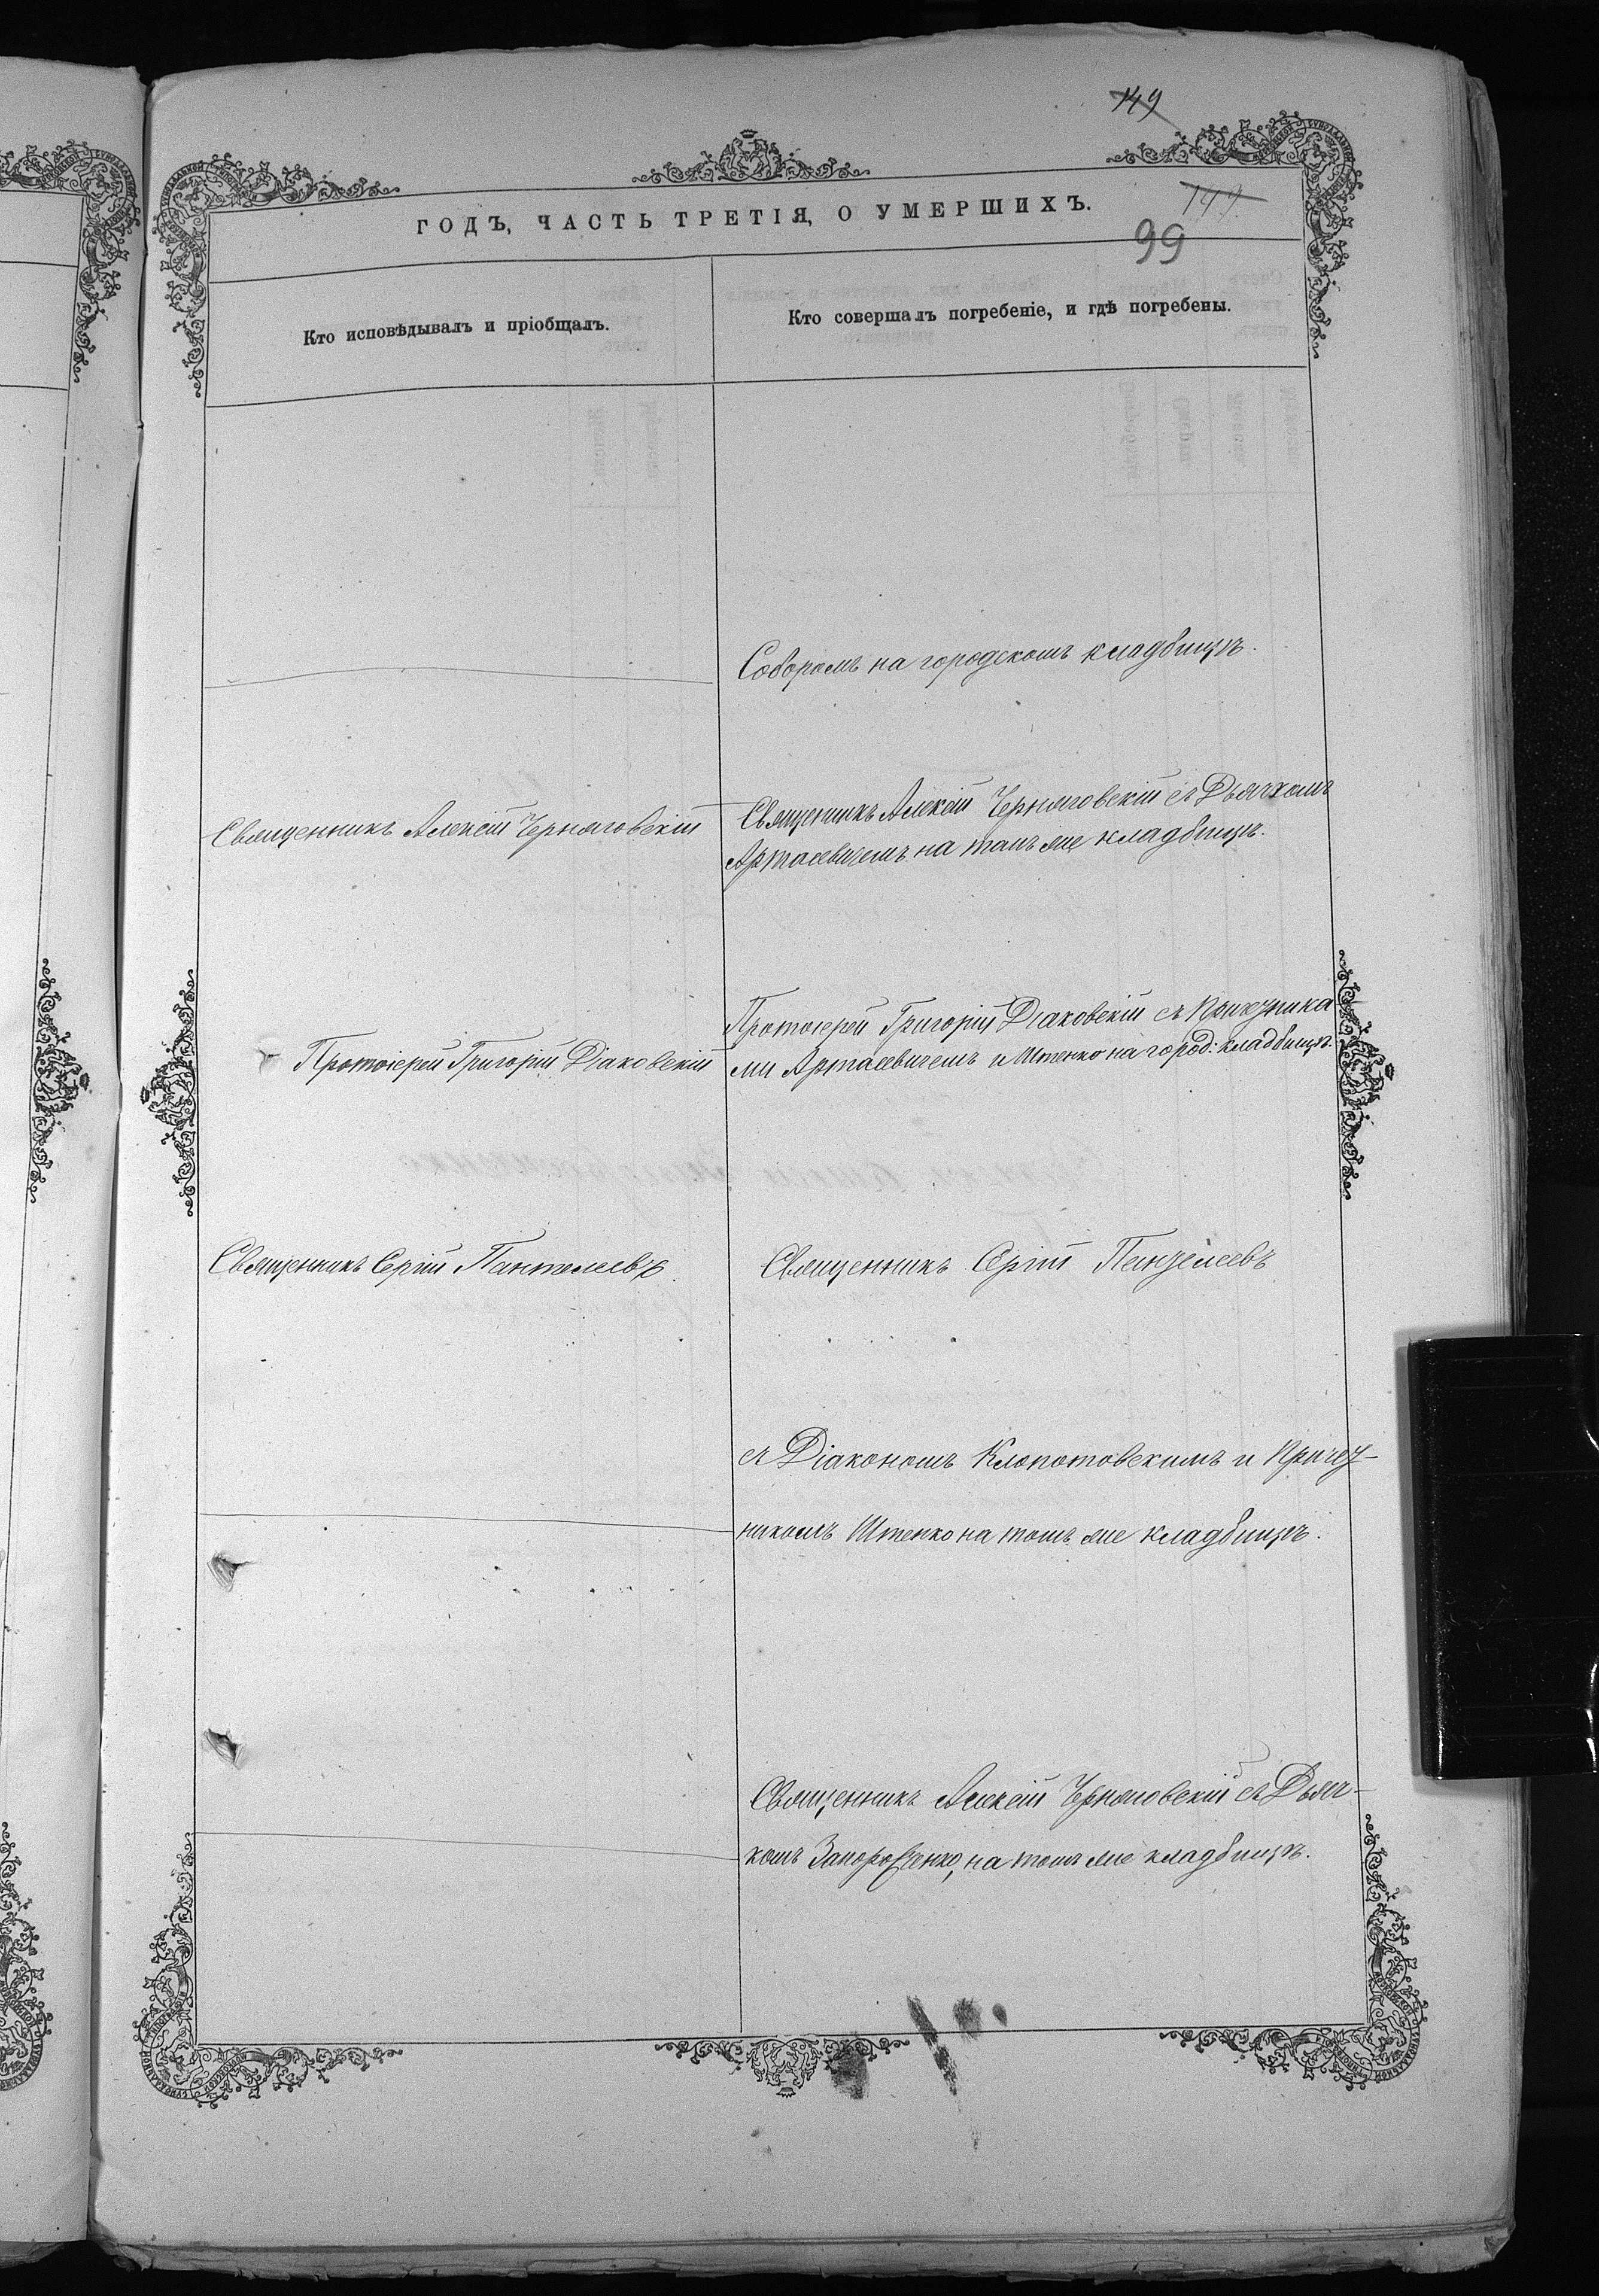 149
149
99
ГОДЪ, ЧАСТЬ ТРЕТІЯ, О УМЕРШИХЪ.
Кто исповѣдывалъ и пріобщалъ.
Кто совершалъ погребеніе, и гдѣ погребены.
Соборомъ на городскомъ кладбищѣ.
Священникъ Алексій Черняговскій
Священникъ Алексій Черняговскій съ Дьячкомъ
Артасевичемъ на томъ же кладбищѣ.
Протоіерей Григорій Діаковскій
Протоіерей Григорій Діаковскій съ Причетника
ми Артасевичемъ и Итенко на город: кладбищѣ.
Священникъ Сергій Пантелеевъ
Священникъ Сергій Пантелеевъ
съ Діакономъ Клопотовскимъ и Причет-
никомъ Итенко на томъ же кладбищѣ.
Священникъ Алексій Черняговскій съ Дьяч-
комъ Запорощенко, на томъ же кладбищѣ.